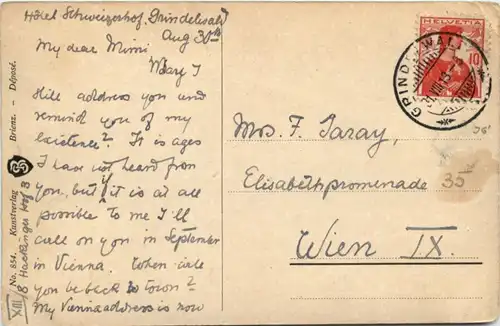 Hôtel Schweizerhof. Grindelwald
Aug 30th
My dear Mimi
May I
still address you and
remind you of my
existence? It is ages
I have not heard from
you, but if it is at all
possible to me I'll
call on you in September
in Vienna. When will
you be back to town?
My Vienna address is now
XIII/ 8
No. 854. Kunstverlag Brienz. – Déposé.
HELVETIA
10
GRINDELWALD
Mrs. F. Taray,
Elisabethpromenade
35
Wien IX.